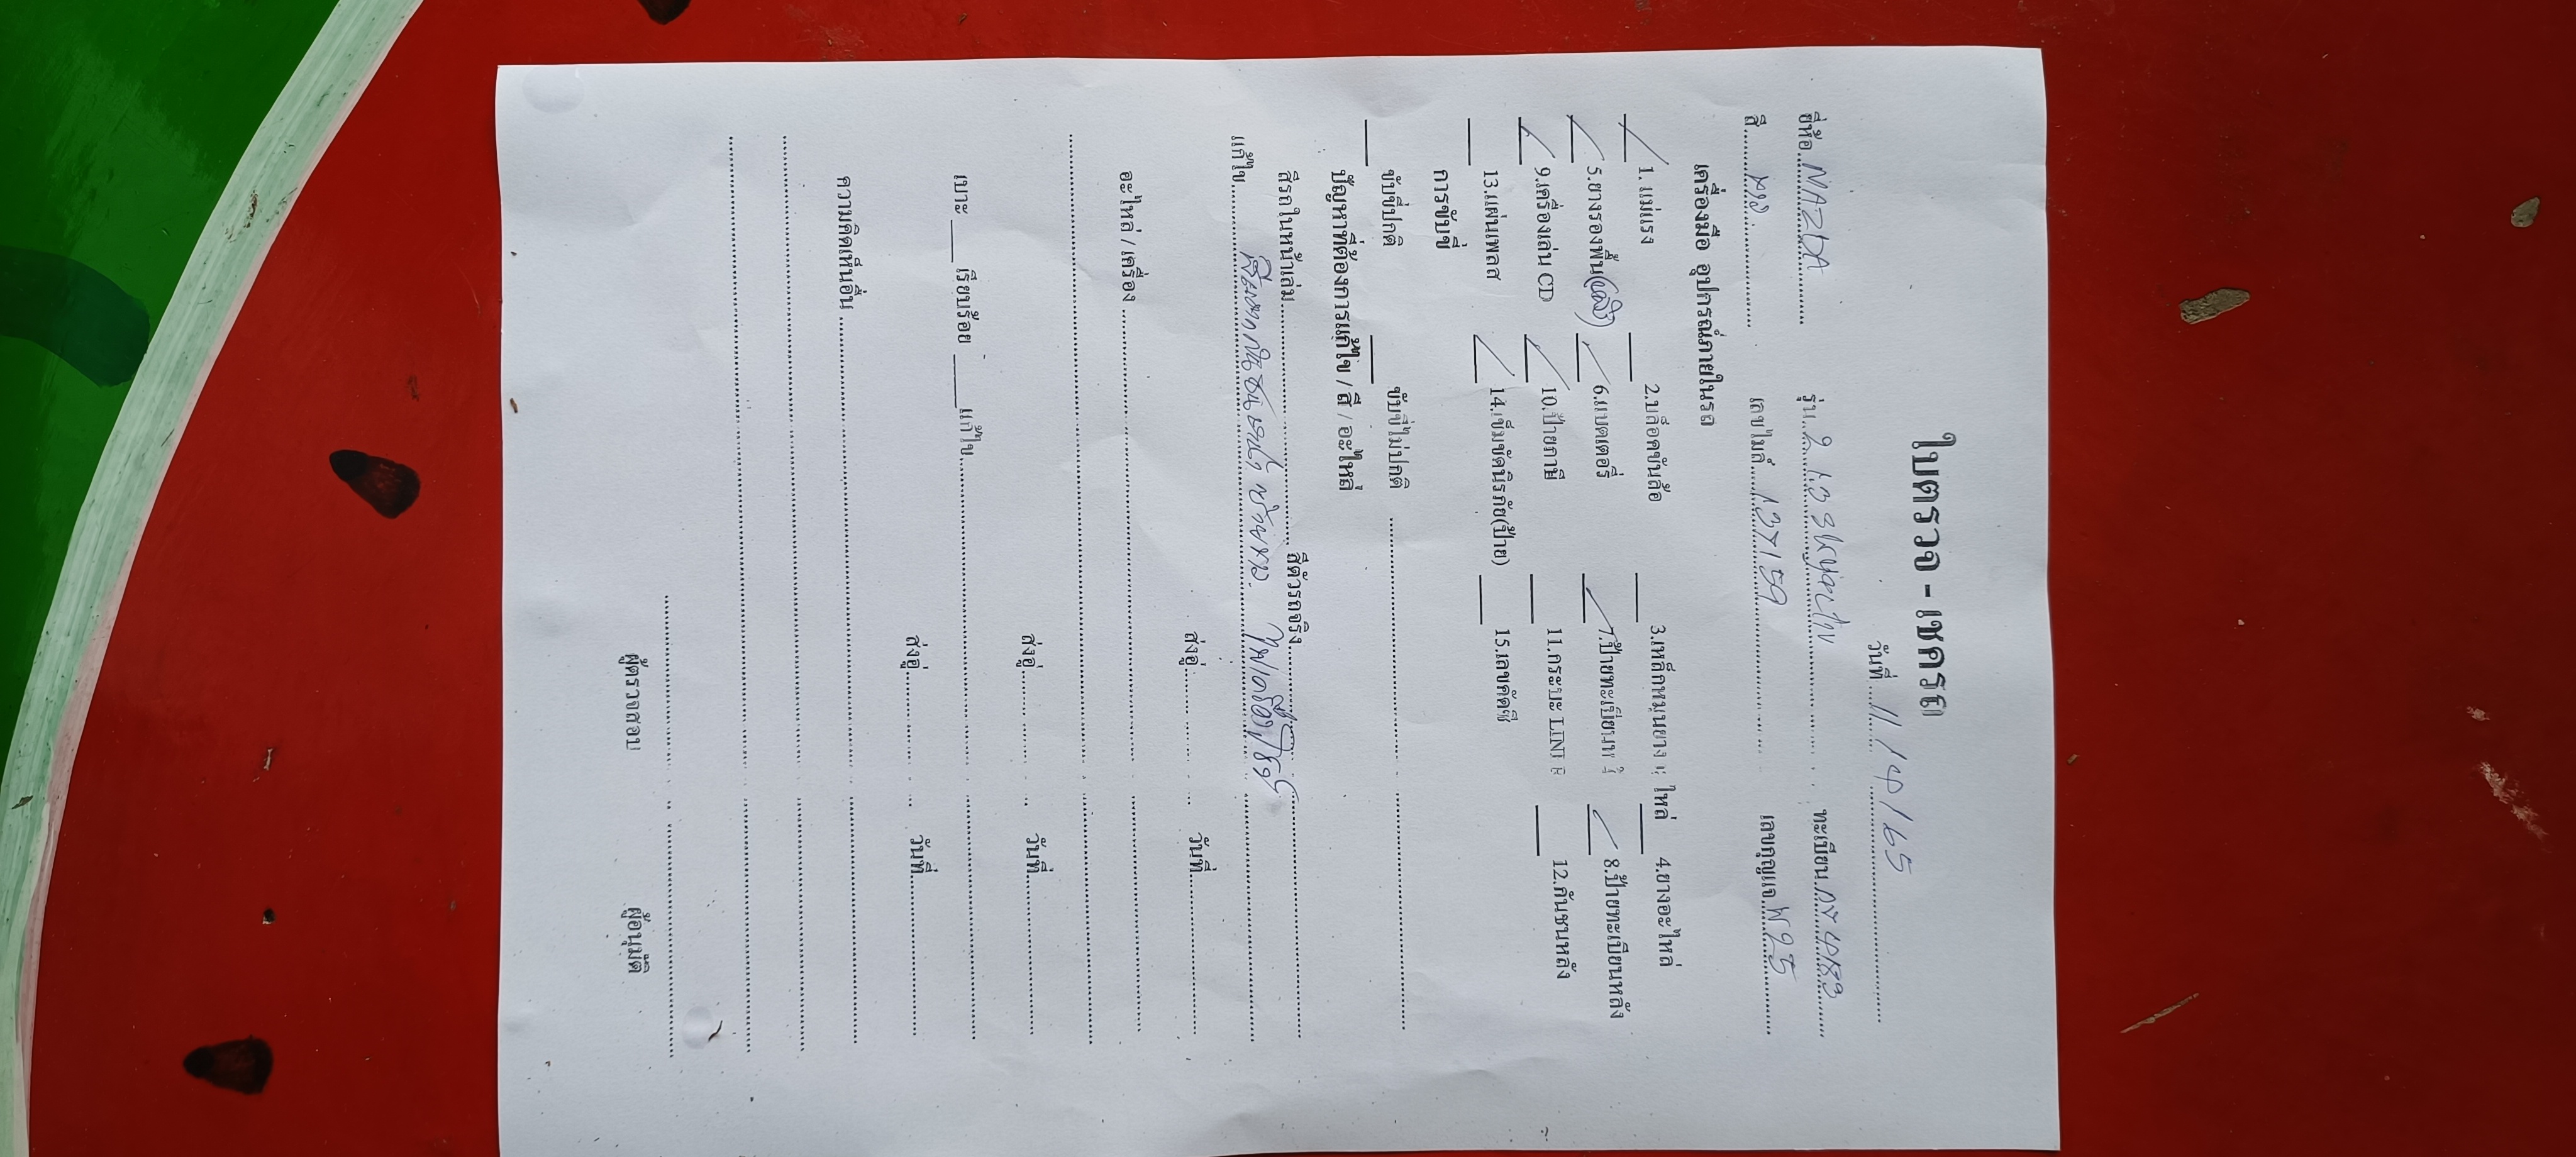 ใบตรวจ - เชครถ
วันที่ 11 / 4 / 65
ยี่ห้อ MAZDA รุ่น 2 1.3 Skyactiv ทะเบียน
สี เลขไมล์ 137159 เลขกุญแจ W25
เครื่องมือ อุปกรณ์ภายในรถ
1. แม่แรง 2.บล็อคขันล้อ 3.เหล็กหมุนยางอะไหล่ 4.ยางอะไหล่
5.ยางรองพื้น 6.แบตเตอรี่ 7.ป้ายทะเบียนหน้า 8.ป้ายทะเบียนหลัง
9.เครื่องเล่น CD 10.ป้ายภาษี 11.กระบะ LINER 12.กันชนหลัง
13.แผ่นเพลส 14.เข็มขัดนิรภัย(ป้าย) 15.เลขคัดซี
การขับขี่
ขับขี่ปกติ ขับขี่ไม่ปกติ
ปัญหาที่ต้องการแก้ไข / สี / อะไหล่
สีรถในหน้าเล่ม สีตัวรถจริง
แก้ไข
ส่งอู่ วันที่
อะไหล่ / เครื่อง
ส่งอู่ วันที่
เบาะ เรียบร้อย แก้ไข
ส่งอู่ วันที่
ความคิดเห็นอื่น
ผู้ตรวจสอบ ผู้อนุมัติ